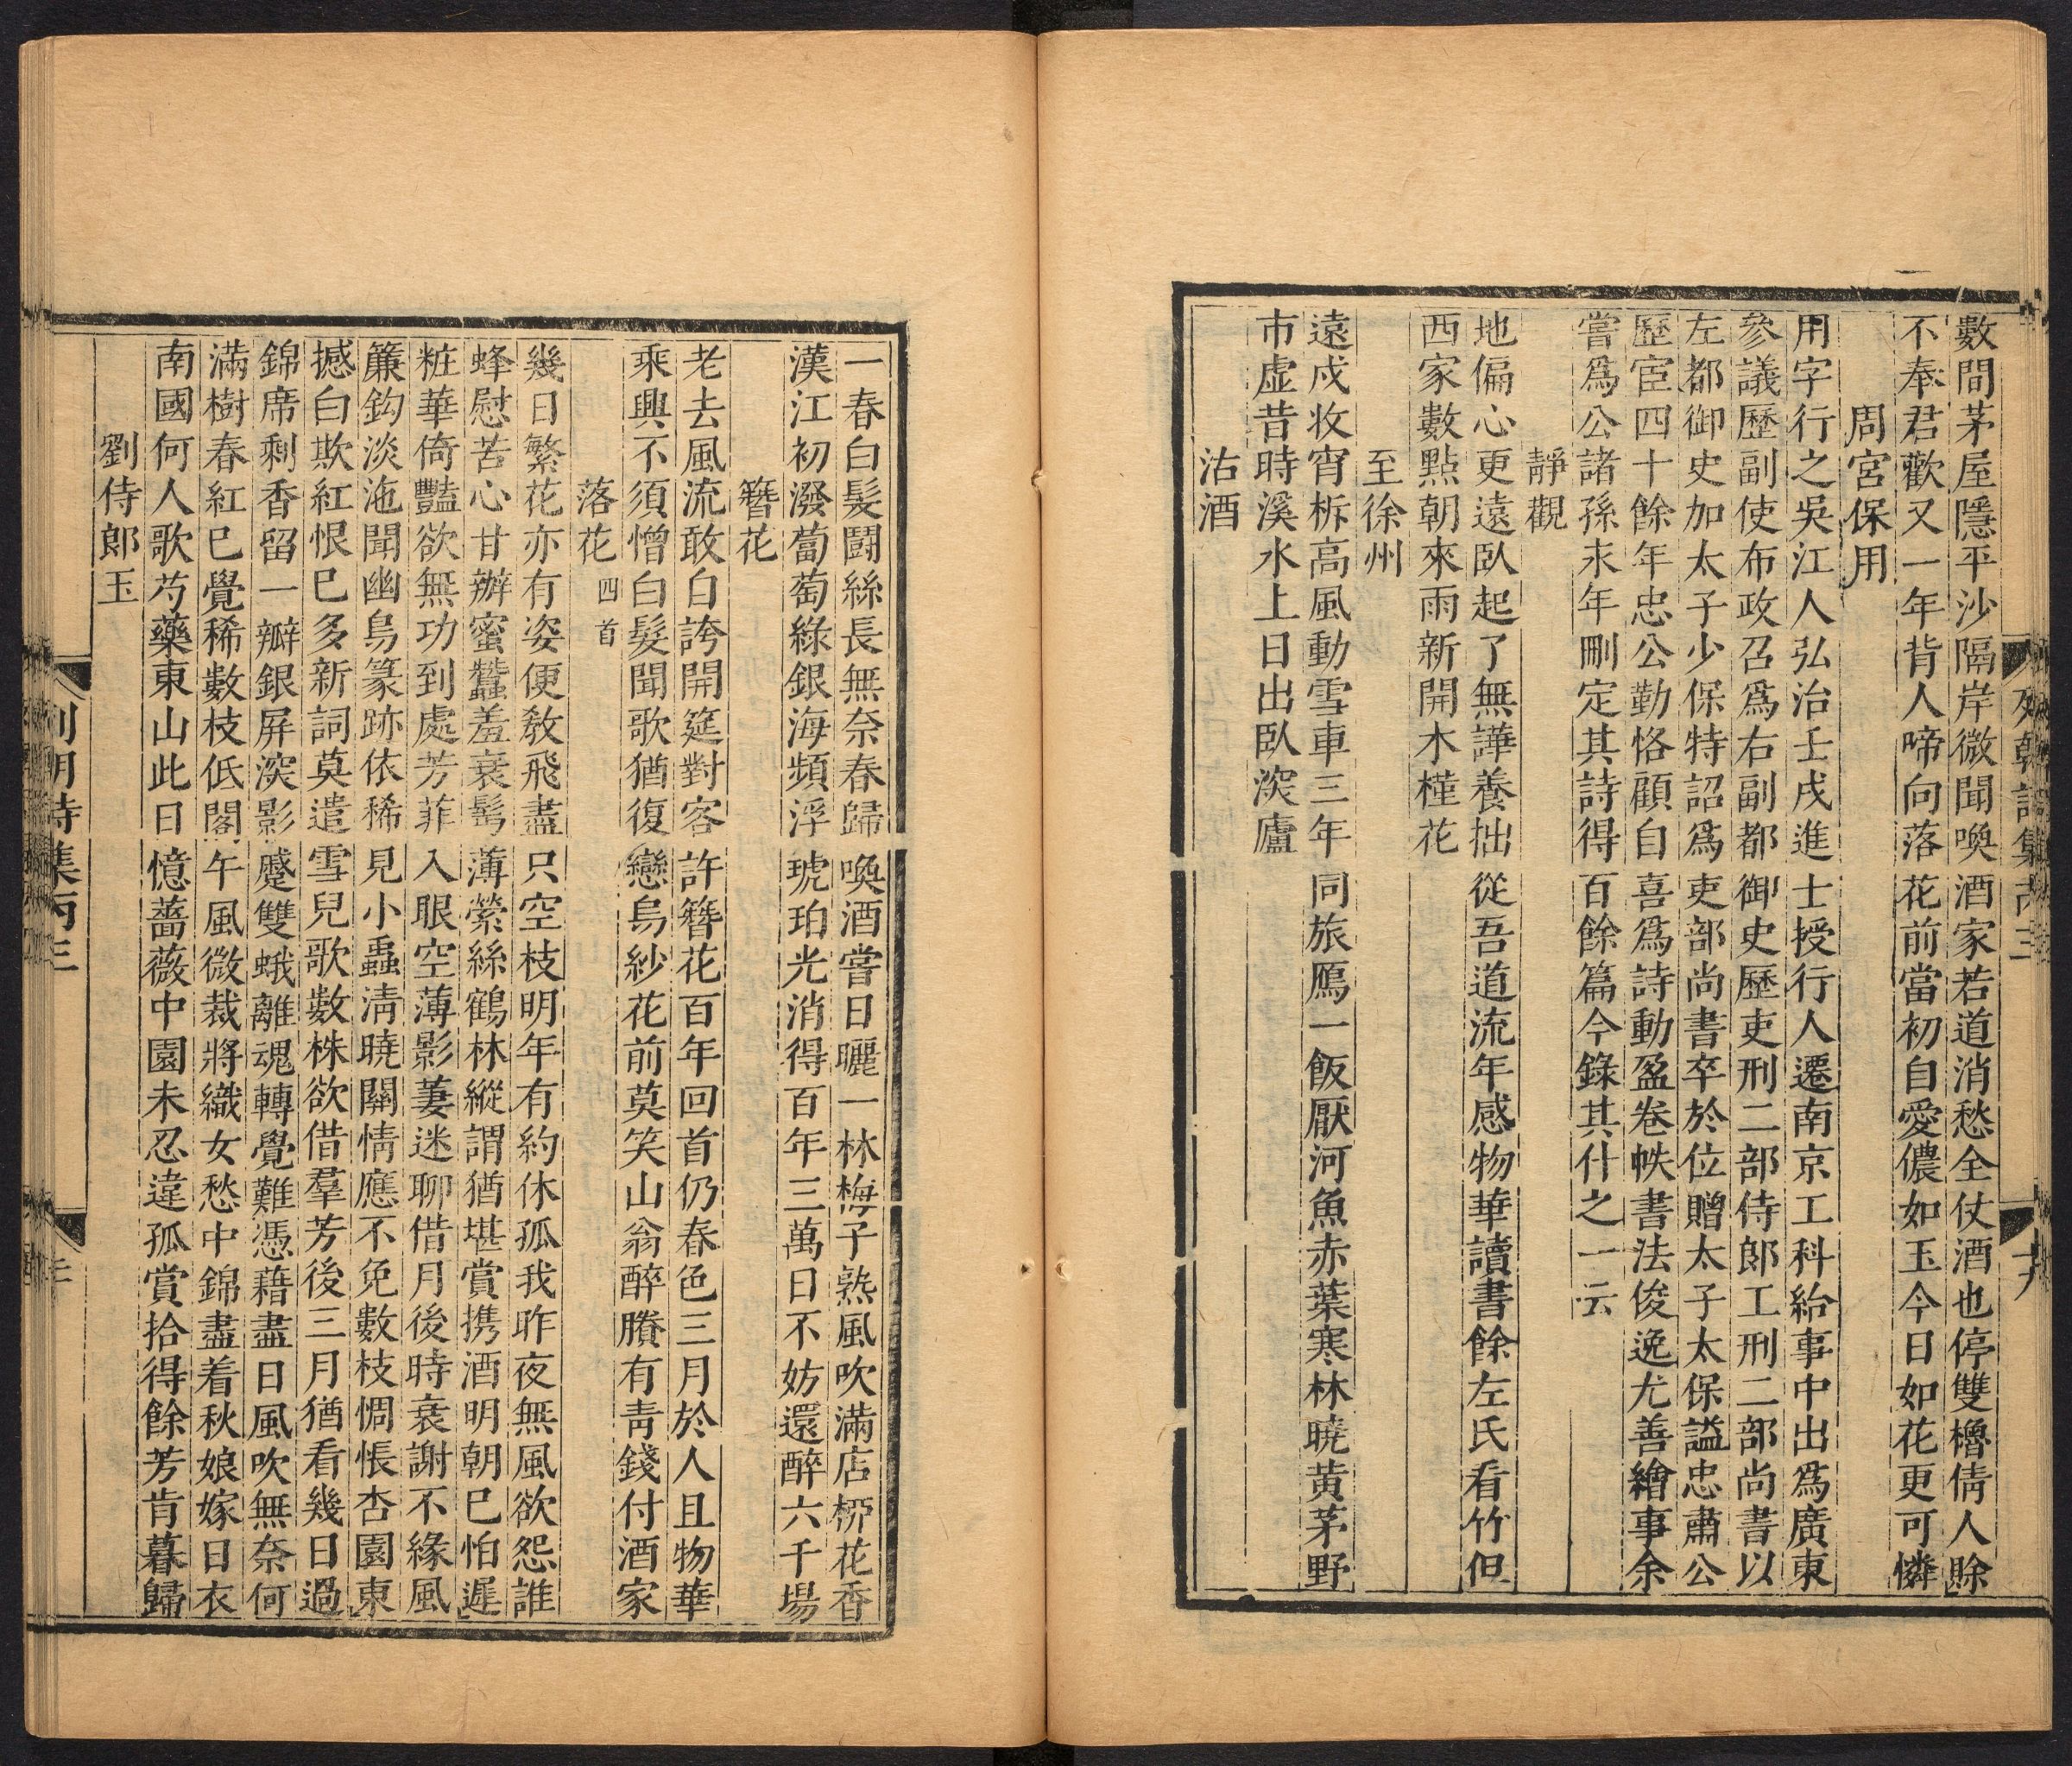 數間茅屋隱平沙隔岸微聞喚酒家若道消愁全仗酒也停雙櫓倩人賖
不奉君歡又一年背人啼向落花前當初自愛儂如玉今日如花更可憐
周宮保用
用字行之吳江人弘治壬戌進士授行人遷南京工科給事中出爲廣東
參議歷副使布政召爲右副都御史歷吏刑二部侍郎工刑二部尚書以
左都御史加太子少保特詔爲吏部尚書卒於位贈太子太保謚忠肅公
歷宦四十餘年忠公勤恪顧自喜爲詩動盈卷帙書法俊逸尤善繪事余
嘗爲公諸孫永年刪定其詩得百餘篇今錄其什之一云
靜觀
地偏心更遠臥起了無譁養拙從吾道流年感物華讀書餘左氏看竹但
西家數點朝來雨新開木槿花
至徐州
遠戍收宵柝高風動雪車三年同旅鴈一飯厭河魚赤葉寒林曉黄茅野
市虛昔時溪水上日出臥深廬
沽酒
一春白髮鬭絲長無奈春歸喚酒嘗日曬一林梅子熟風吹滿店栁花香
漢江初潑蔔萄綠銀海頻浮琥珀光消得百年三萬日不妨還醉六千場
簪花
老去風流敢自誇開筵對客許簪花百年回首仍春色三月於人且物華
乘興不須憎白髮聞歌猶復戀烏紗花前莫笑山翁醉賸有靑錢付酒家
落花 四首
幾日繁花亦有姿便敎飛盡只空枝明年有約休孤我昨夜無風欲怨誰
蜂慰苦心甘辦蜜蠶羞衰髩薄縈絲鶴林縱謂猶堪賞携酒明朝已怕遲
粧華倚豔欲無功到處芳菲入眼空薄影萋迷聊借月後時衰謝不緣風
簾鈎淡沲聞幽鳥篆跡依稀見小蟲淸曉關情應不免數枝惆悵杏園東
撼白欺紅恨已多新詞莫遣雪兒歌數株欲借羣芳後三月猶看幾日過
錦席剩香留一瓣銀屏深影蹙雙蛾離魂轉覺難憑藉盡日風吹無奈何
滿樹春紅已覺稀數枝低閣午風微裁將織女愁中錦盡着秋娘嫁日衣
南國何人歌芍藥東山此日憶薔薇中園未忍違孤賞拾得餘芳肯暮歸
劉侍郎玉